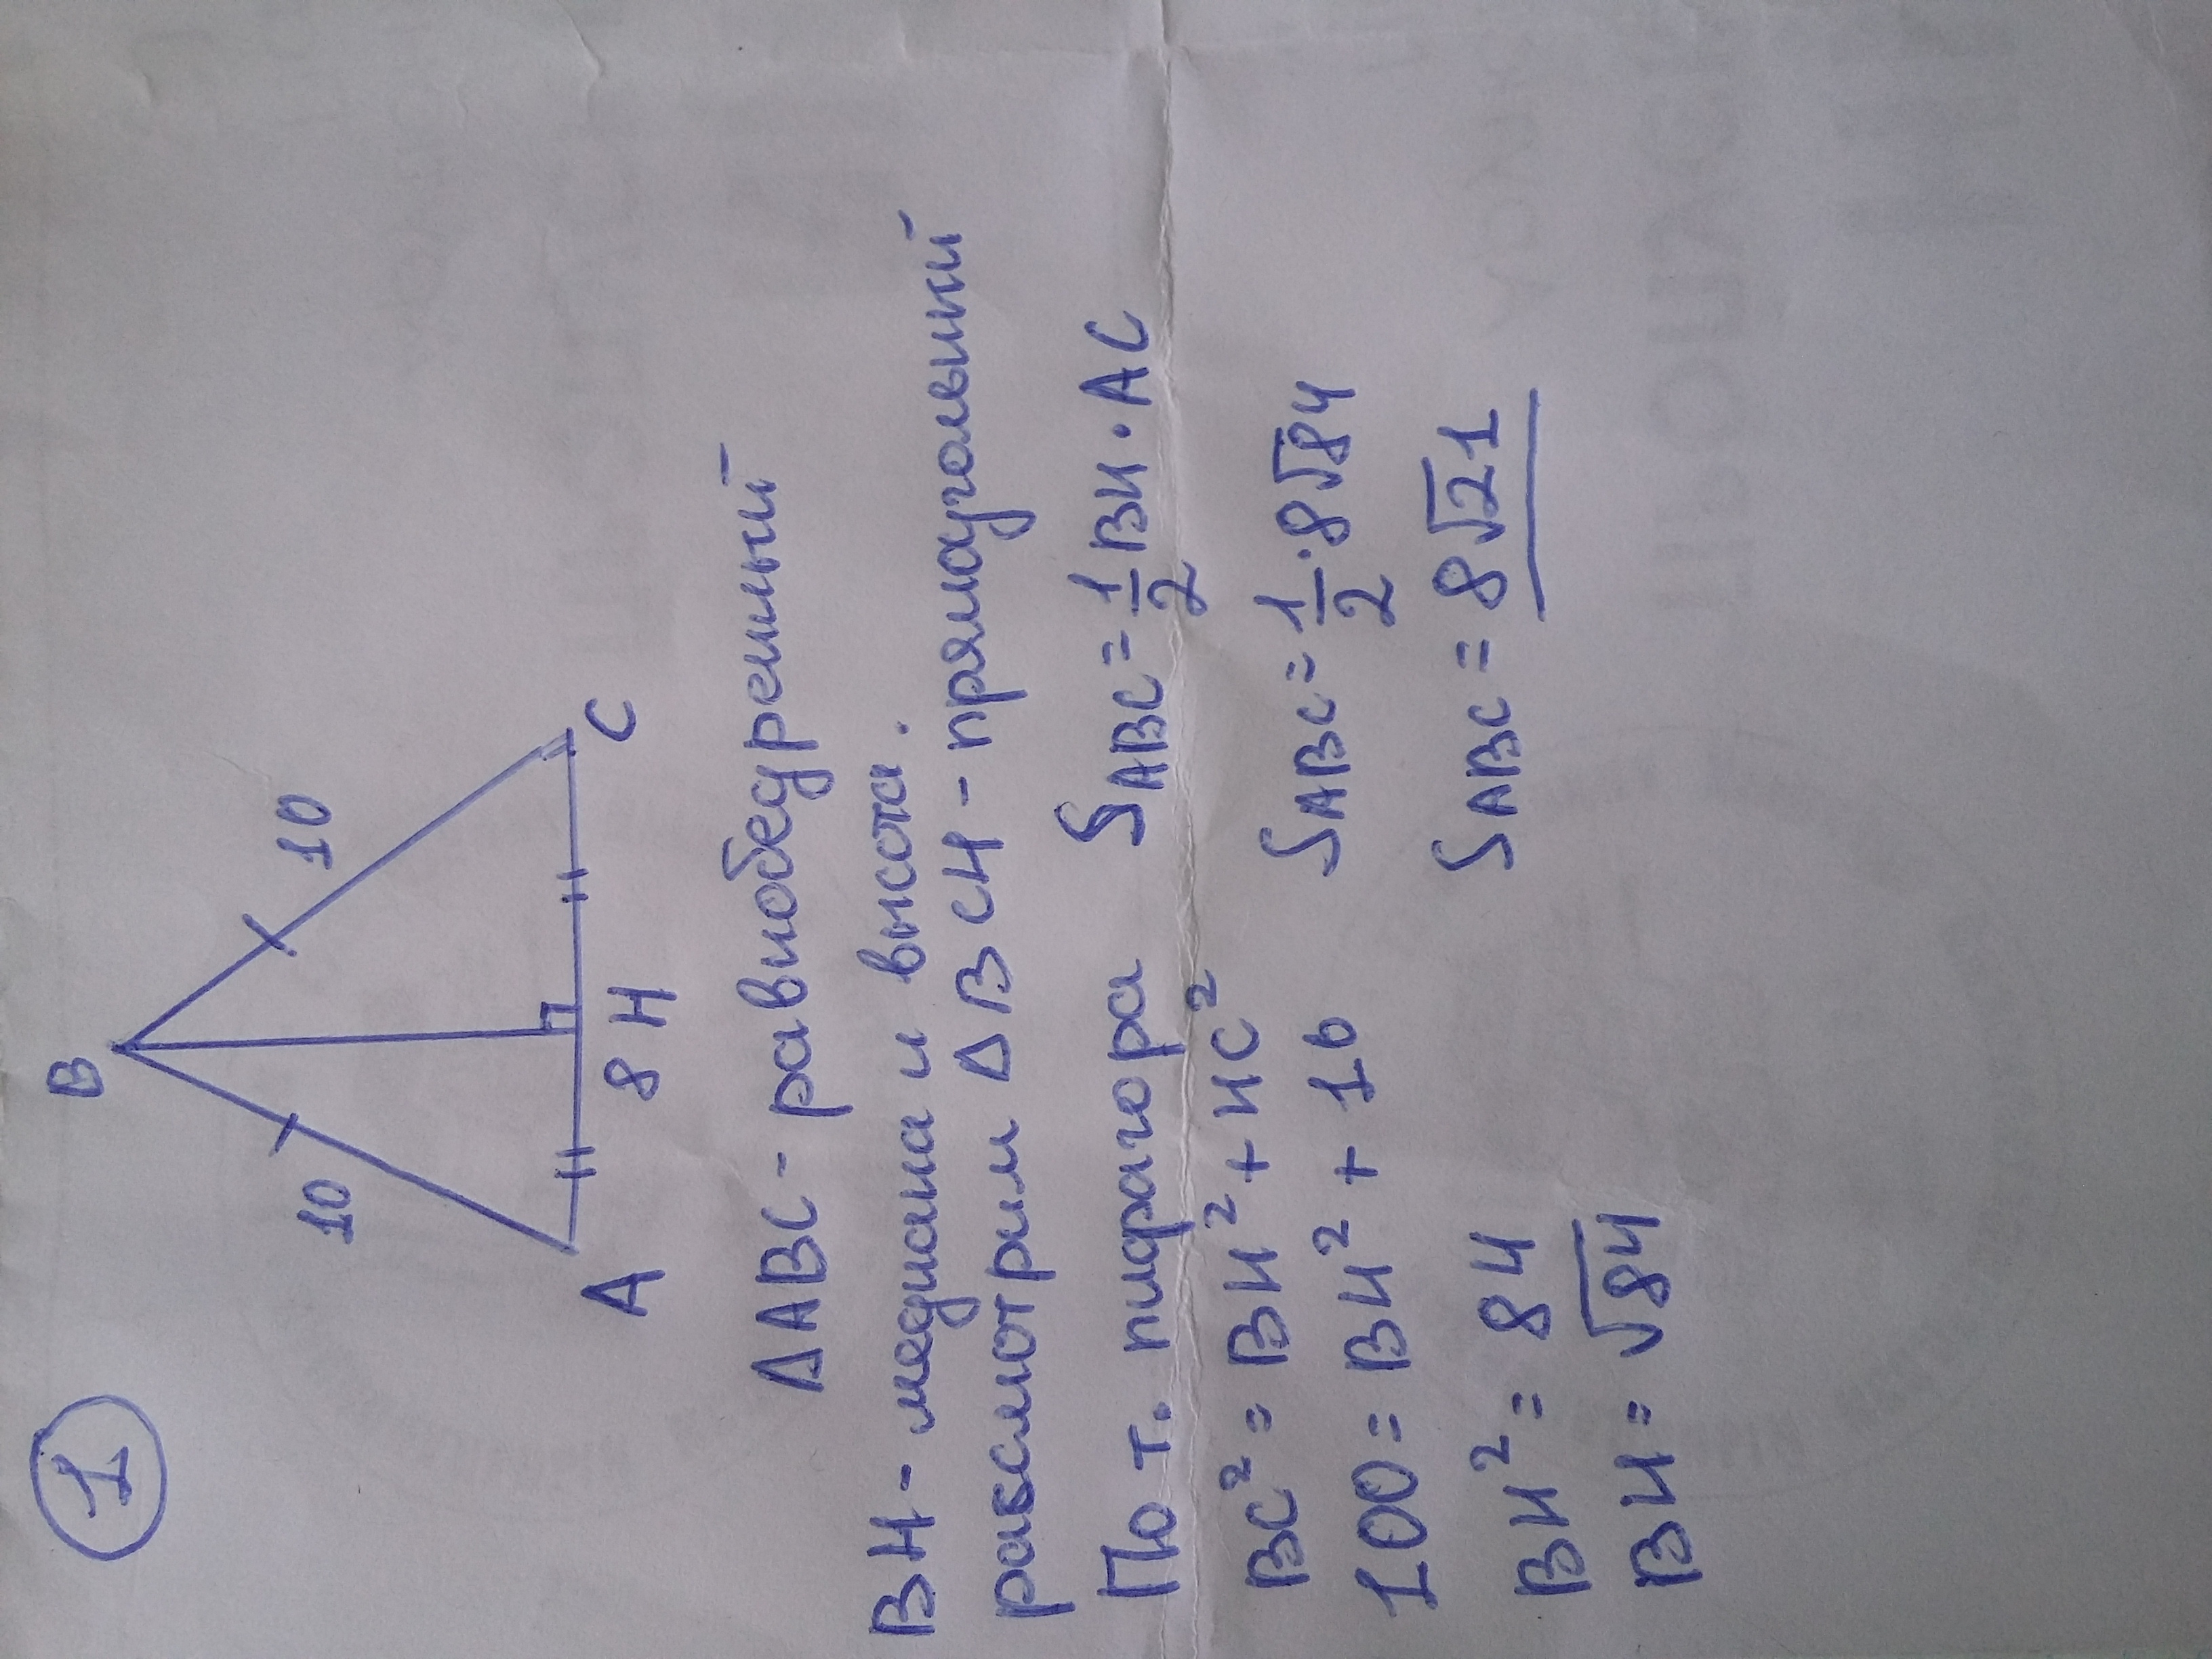 1
B
10
10
A
8
H
C
ΔABC - равнобедренный
BH - медиана и высота.
рассмотрим ΔBCH - прямоугольный
По т. пифагора
BC² = BH² + HC²
100 = BH² + 16
BH² = 84
BH = √84
S ABC = 1/2 BH · AC
S ABC = 1/2 · 8√84
S ABC = 8√21